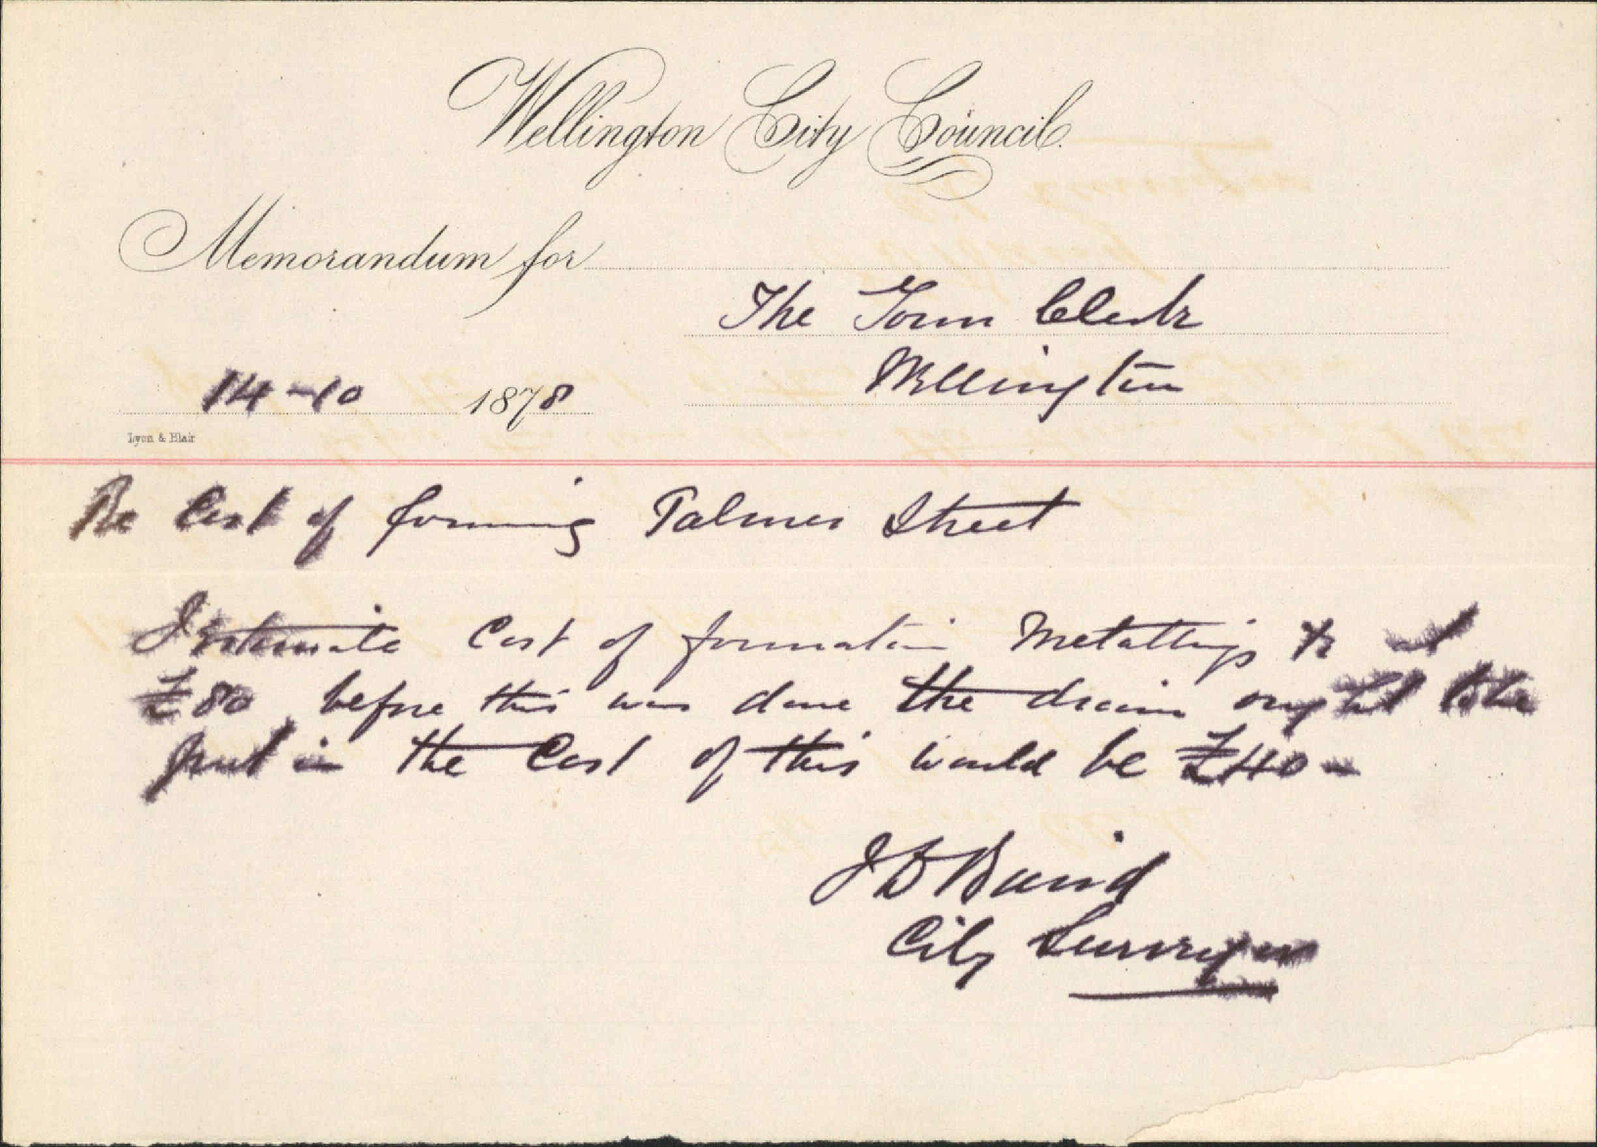 Wellington City Council.
Memorandum for
The Town Clerk
Wellington
14-10 1878
Lyon & Blair
Re Cost of forming Palmer Street
I estimate Cost of formation Metalling &c at
£80 before this was done the drain ought to be
put in the Cost of this would be £40-
J D Baird
City Surveyor